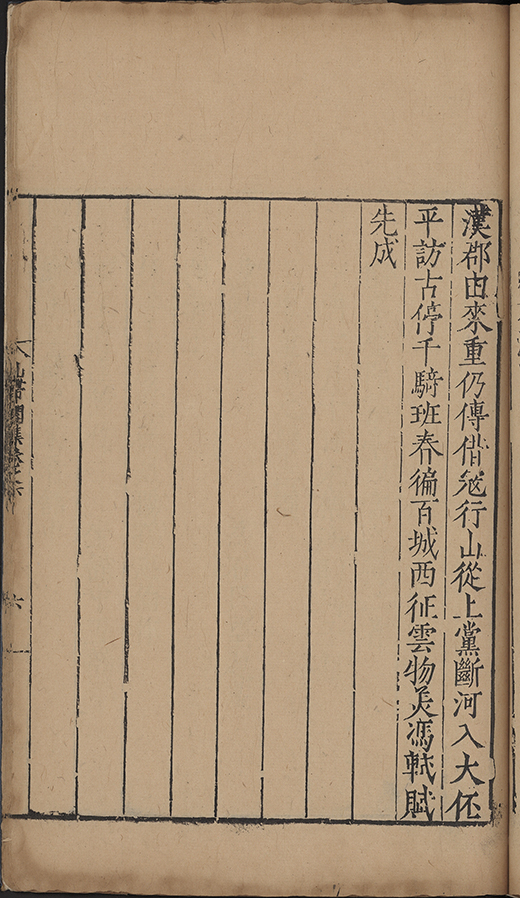 漢郡由來重仍傳借寇行山從上黨斷河入大伾
平訪古停千騎班春徧百城西征雲物美馮軾賦
先成